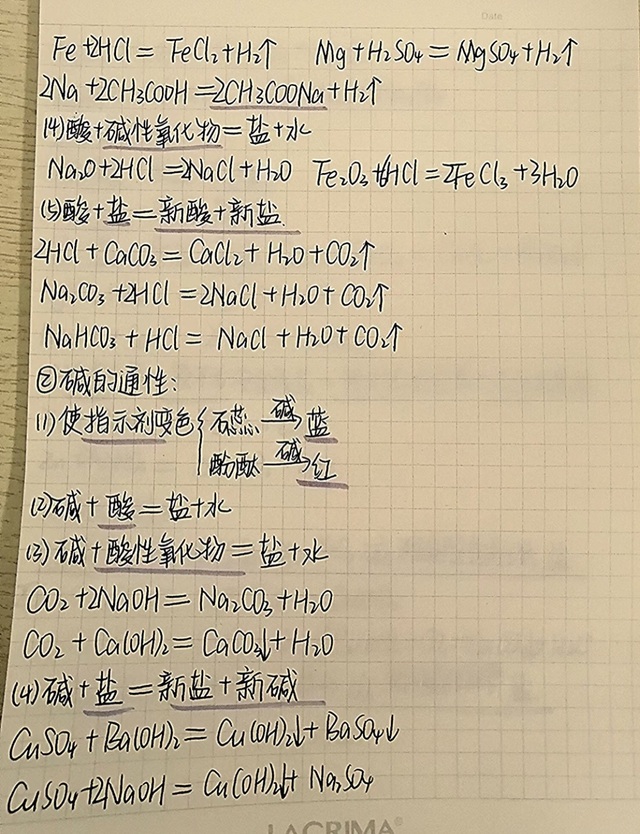 Date
Fe+2HCl=FeCl₂+H₂↑ Mg+H₂SO₄=MgSO₄+H₂↑
2Na+2CH₃COOH=2CH₃COONa+H₂↑
(4)酸+碱性氧化物=盐+水
Na₂O+2HCl=2NaCl+H₂O Fe₂O₃+6HCl=2FeCl₃+3H₂O
(5)酸+盐=新酸+新盐.
2HCl+CaCO₃=CaCl₂+H₂O+CO₂↑
Na₂CO₃+2HCl=2NaCl+H₂O+CO₂↑
NaHCO₃+HCl=NaCl+H₂O+CO₂↑
②碱的通性:
(1)使指示剂变色{石蕊 碱→ 蓝
酚酞 碱→ 红
(2)碱+酸=盐+水
(3)碱+酸性氧化物=盐+水
CO₂+2NaOH=Na₂CO₃+H₂O
CO₂+Ca(OH)₂=CaCO₃↓+H₂O
(4)碱+盐=新盐+新碱
CuSO₄+Ba(OH)₂=Cu(OH)₂↓+BaSO₄↓
CuSO₄+2NaOH=Cu(OH)₂↓+Na₂SO₄
LACRIMA®